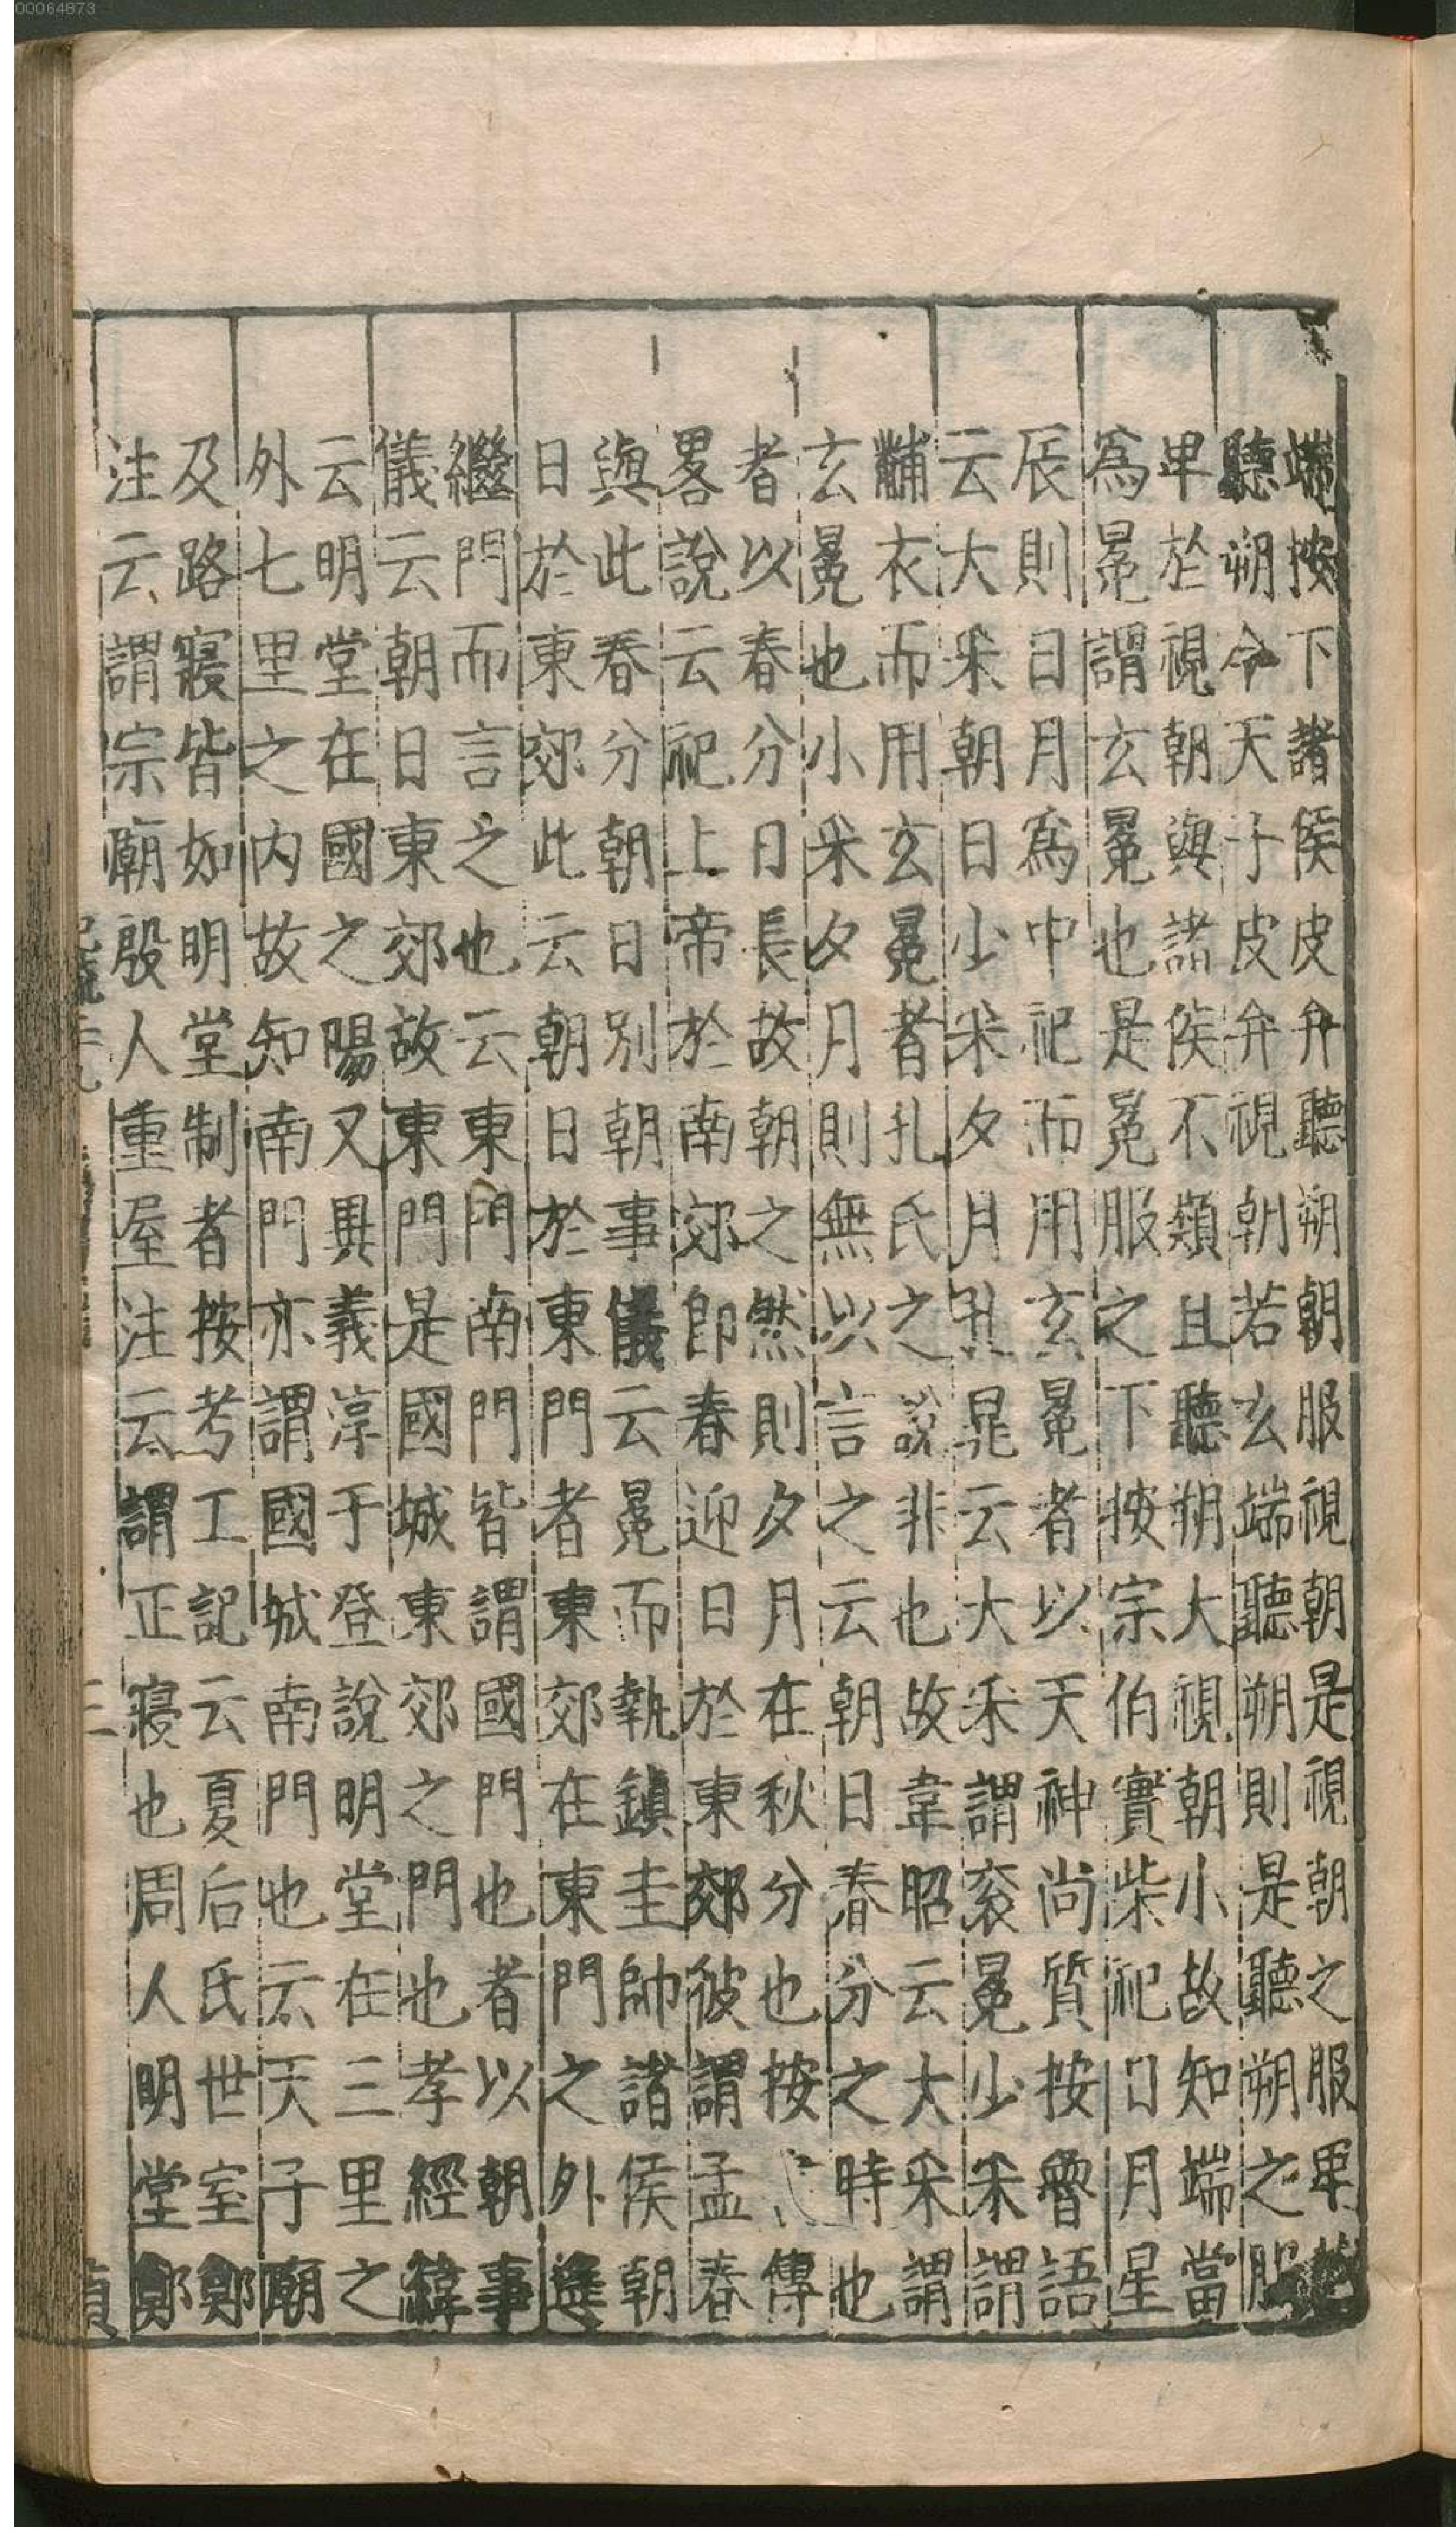 00064873
端按下諸侯皮弁聽朔朝服視朝是視朝之服卑
聽朔今天子皮弁視朝若玄端聽朔則是聽朔之服
卑於視朝與諸侯不類且聽朔大視朝小故知端當
爲冕謂玄冕也是冕服之下按宗伯實柴祀日月星
辰則日月爲中祀而用玄冕者以天神尚質按魯語
云大采朝日少采夕月孔晁云大采謂衮冕少采謂
黼衣而用玄冕者孔氏之說非也故韋昭云大采謂
玄冕也小采夕月則無以言之云朝日春分之時也
者以春分日長故朝之然則夕月在秋分也按 傳
畧說云祀上帝於南郊即春迎日於東郊彼謂孟春
與此春分朝日別朝事儀云冕而執鎮圭帥諸侯朝
日於東郊此云朝日於東門者東郊在東門之外遙
繼門而言之也云東門南門皆謂國門也者以朝事
儀云朝日東郊故東門是國城東郊之門也孝經緯
云明堂在國之陽又異義淳于登說明堂在三里之
外七里之內故知南門亦謂國城南門也云天子廟
及路寢皆如明堂制者按考工記云夏后氏世室鄭
注云謂宗廟殷人重屋注云謂正寢也周人明堂鄭